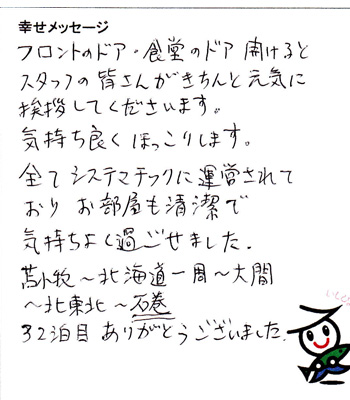 幸せメッセージ
フロントのドア・食堂のドア 開けると
スタッフの皆さんがきちんと元気に
挨拶してくださいます。
気持ち良く ほっこりします。
全てシステマチックに運営されて
おり お部屋も清潔で
気持ちよく過ごせました.
苫小牧～北海道一周～大間
～北東北～石巻
32泊目 ありがとうございました.